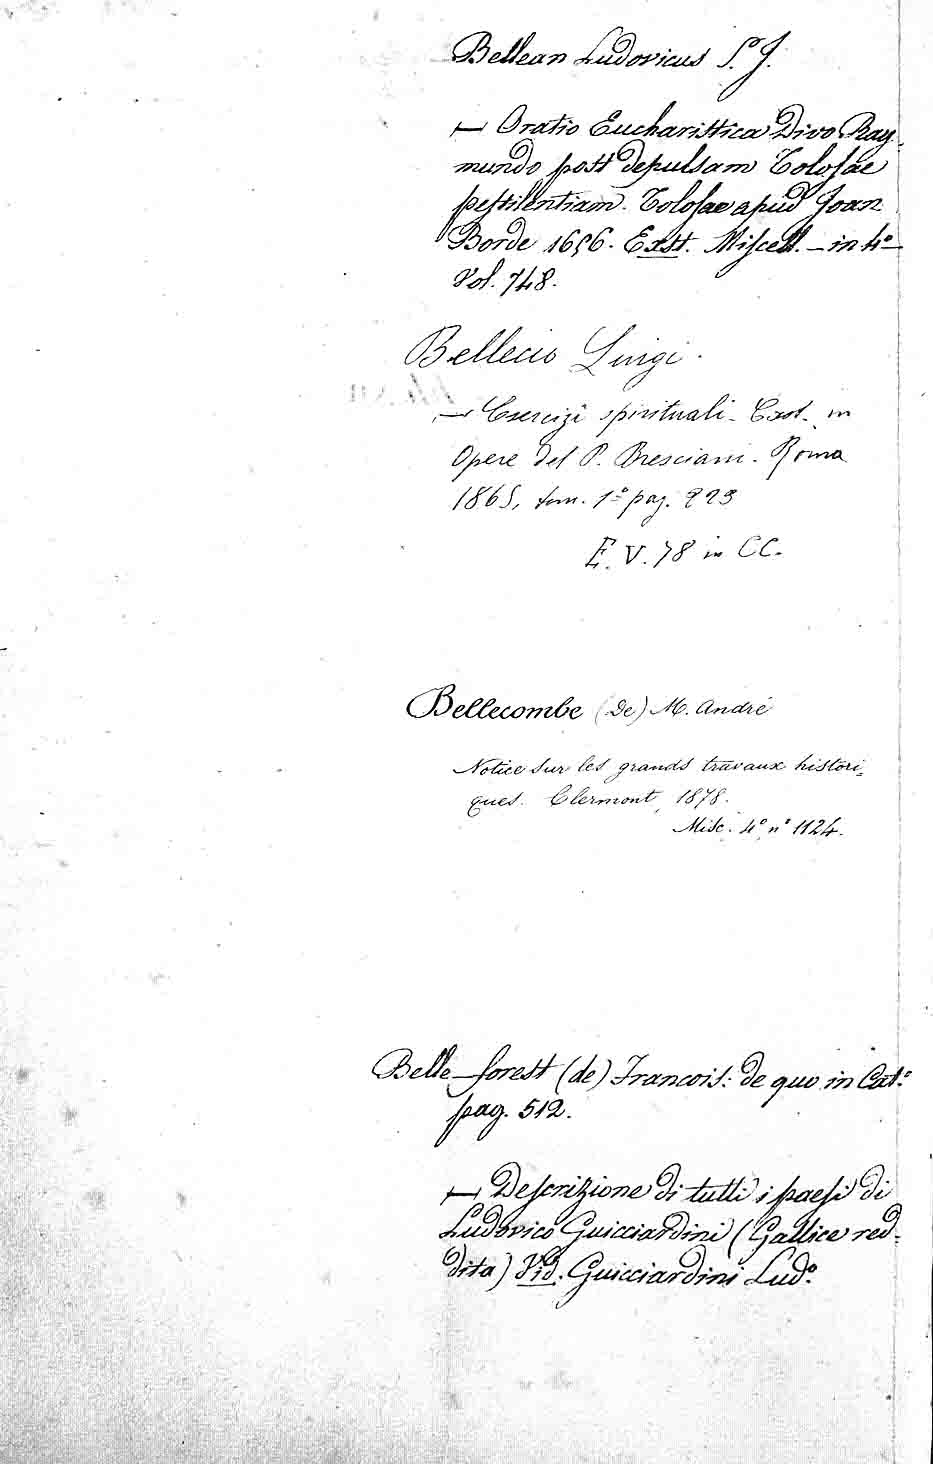 Bellean Ludovicus S. J.
— Oratio Eucharistica Divo Ray-
mundo post depulsam Tolosae
pestilentiam. Tolosae apud Joan
Borde 1656. Exst. Miscell. – in 4°
Vol. 748.
Bellecio Luigi.
— Esercizi spirituali. Exst. in
Opere del P. Bresciani. Roma
1865, tom. 1° pag. 223
E. V. 78 in CC.
Bellecombe (De) M. André
Notice sur les grands travaux histori=
ques. Clermont, 1878.
Misc. 4° n° 1124.
Belle-forest (de) Francois: de quo in Cat.°
pag. 512.
— Descrizione di tutti i paesi di
Ludovico Guicciardini (Gallice red=
dita) Vid. Guicciardini Lud.°